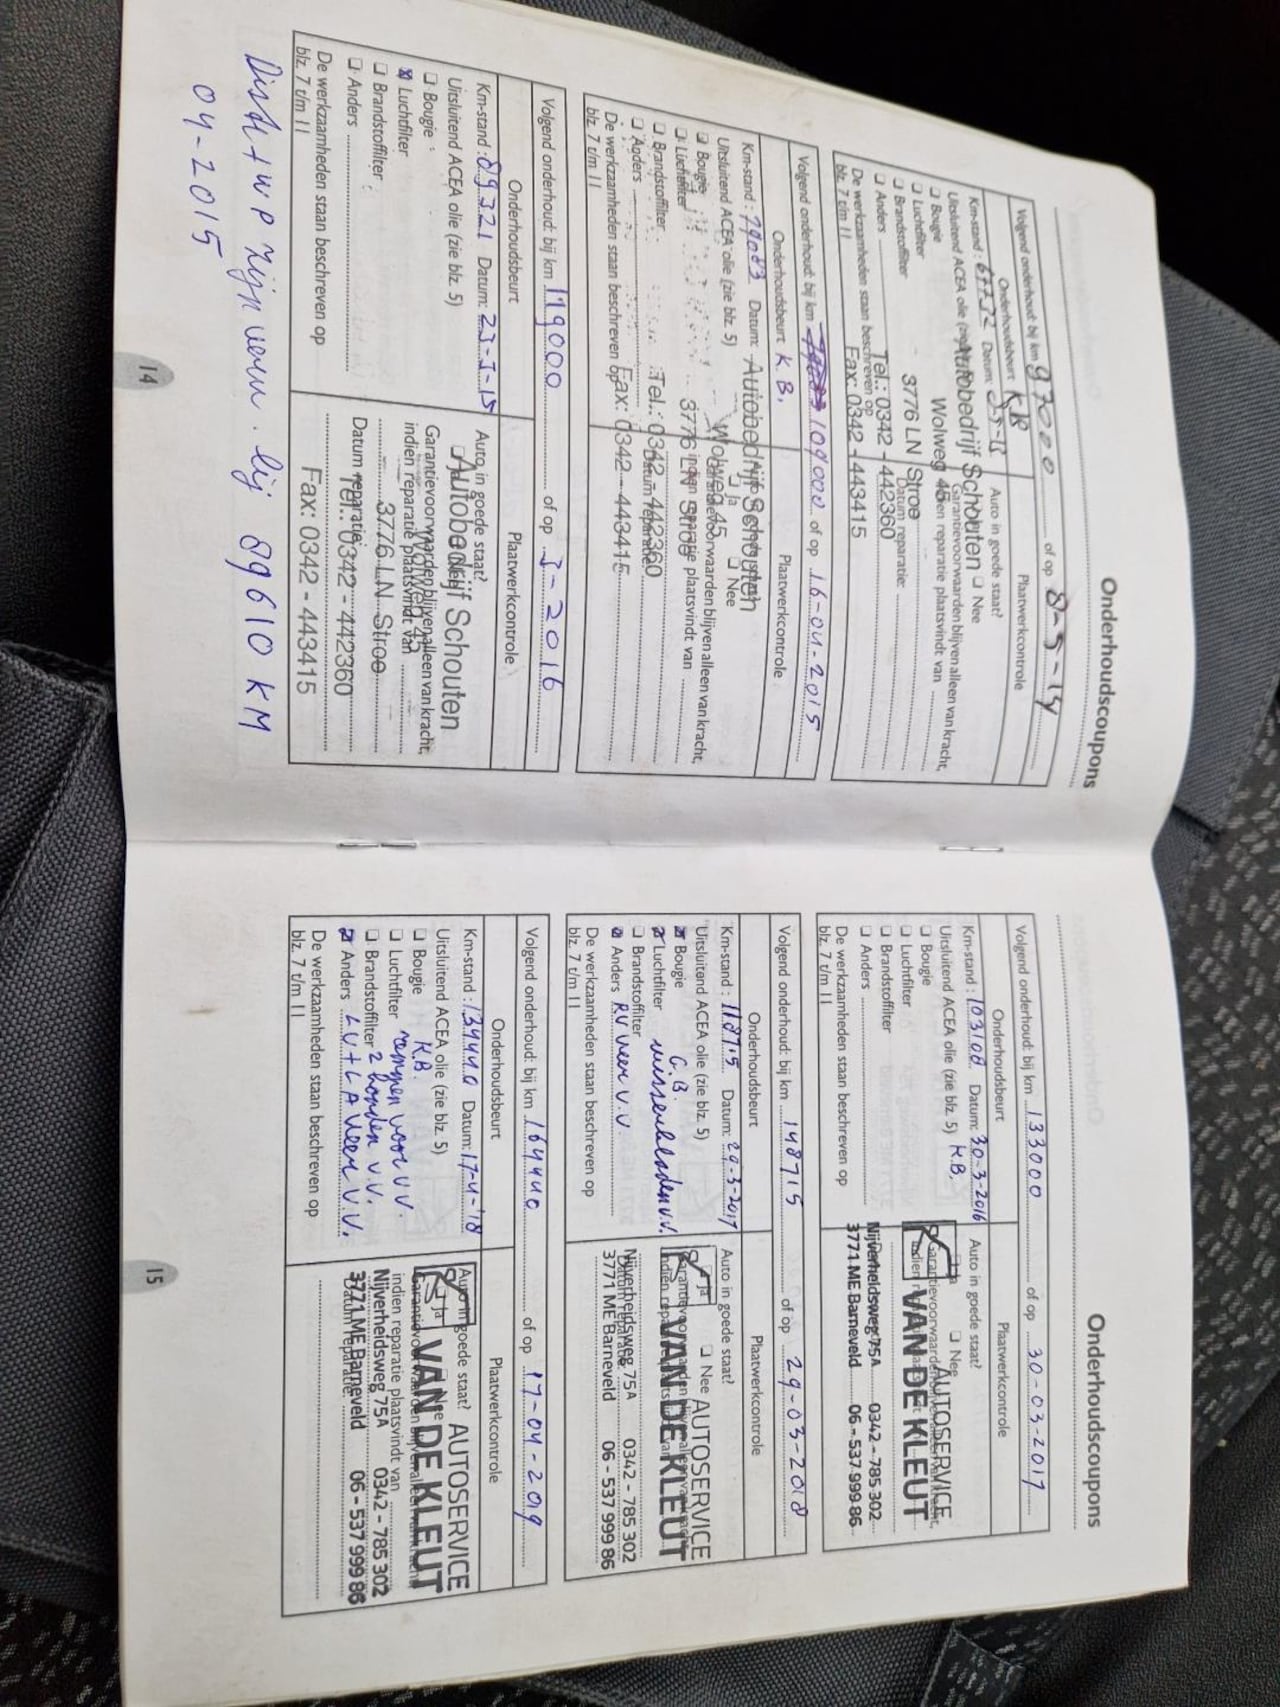 Onderhoudscoupons
Volgend onderhoud: bij km 97000 of op 8-5-14
Onderhoudsbeurt KB
Plaatwerkcontrole
Km-stand: Datum:
Auto in goede staat?
Uitsluitend ACEA olie (zie
Nee
Autobedrijf Schouten
Bougie
Garantievoorwaarden blijven alleen van kracht,
Wolweg 45
Luchtfilter
indien reparatie plaatsvindt van
3776 LN Stroe
Brandstoffilter
Datum reparatie:
Anders
Tel.: 0342 - 442360
De werkzaamheden staan beschreven op
Fax: 0342 - 443415
blz. 7 t/m 11
Volgend onderhoud: bij km 109000 of op 16-04-2015
Onderhoudsbeurt K.B.
Plaatwerkcontrole
Km-stand: 79083 Datum:
Autobedrijf Schouten
Uitsluitend ACEA olie (zie blz. 5)
Ja Nee
Bougie
Wolweg 45
Garantievoorwaarden blijven alleen van kracht,
Luchtfilter
3776 LN Stroe
indien reparatie plaatsvindt van
Brandstoffilter
Tel.: 0342 - 442360
Datum reparatie:
Anders
De werkzaamheden staan beschreven op
Fax: 0342 - 443415
blz. 7 t/m 11
Volgend onderhoud: bij km 119000 of op 3-2016
Onderhoudsbeurt
Plaatwerkcontrole
Km-stand: 89321 Datum: 23-3-15
Auto in goede staat?
Uitsluitend ACEA olie (zie blz. 5)
Autobedrijf Schouten
Bougie
Garantievoorwaarden blijven alleen van kracht,
Luchtfilter
indien reparatie plaatsvindt van
Brandstoffilter
3776 LN Stroe
Anders
Datum reparatie:
Tel.: 0342 - 442360
De werkzaamheden staan beschreven op
Fax: 0342 - 443415
blz. 7 t/m 11
Distr + WP zijn vern. bij 89610 KM
04-2015
14
Onderhoudscoupons
Volgend onderhoud: bij km 133000 of op 30-03-2017
Onderhoudsbeurt
Plaatwerkcontrole
Km-stand: 103108 Datum: 30-3-2016
Auto in goede staat?
Uitsluitend ACEA olie (zie blz. 5) K.B.
Ja Nee
AUTOSERVICE
Bougie
Garantievoorwaarden
VAN DE KLEUT
Luchtfilter
indien
Brandstoffilter
Nijverheidsweg 75A 0342 - 785 302
Anders
3771 ME Barneveld 06 - 537 999 86
De werkzaamheden staan beschreven op
blz. 7 t/m 11
Volgend onderhoud: bij km 148715 of op 29-03-2018
Onderhoudsbeurt
Plaatwerkcontrole
Km-stand: 118715 Datum: 29-3-2017
Auto in goede staat?
Uitsluitend ACEA olie (zie blz. 5)
Ja Nee
AUTOSERVICE
Bougie G.B.
VAN DE KLEUT
Luchtfilter wisserbladen v.v.
Brandstoffilter
Nijverheidsweg 75A 0342 - 785 302
Anders RV veer v.v.
3771 ME Barneveld 06 - 537 999 86
De werkzaamheden staan beschreven op
blz. 7 t/m 11
Volgend onderhoud: bij km 164440 of op 17-04-2019
Onderhoudsbeurt
Plaatwerkcontrole
Km-stand: 134440 Datum: 17-4-'18
Auto in goede staat?
Uitsluitend ACEA olie (zie blz. 5)
Ja Nee
AUTOSERVICE
Bougie K.B.
VAN DE KLEUT
Luchtfilter remmen voor v.v.
indien reparatie plaatsvindt van
Brandstoffilter 2 banden v.v.
Nijverheidsweg 75A 0342 - 785 302
Anders LV + LA veer v.v.
Datum reparatie:
3771 ME Barneveld 06 - 537 999 86
De werkzaamheden staan beschreven op
blz. 7 t/m 11
15